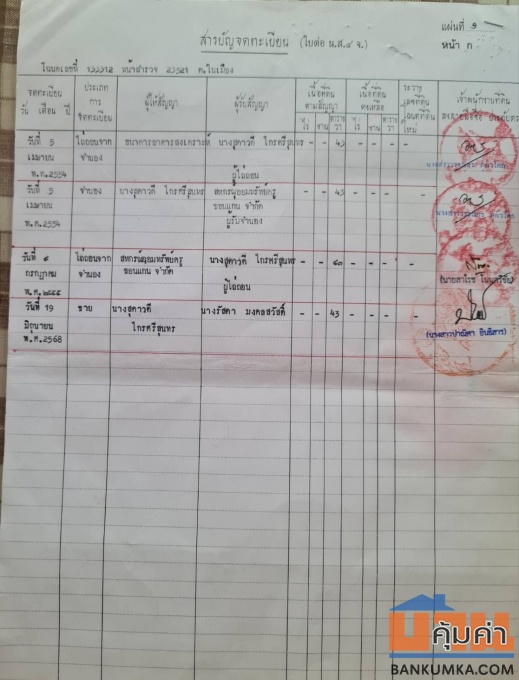 แผ่นที่ ๑
สารบัญจดทะเบียน (ใบต่อ น.ส.๔ จ.)
หน้า ก
โฉนดเลขที่ 133312 หน้าสำรวจ 23921 ต.ในเมือง
จดทะเบียน วัน เดือน ปี
ประเภทการจดทะเบียน
ผู้ให้สัญญา
ผู้รับสัญญา
เนื้อที่ดินตามสัญญา
ไร่ งาน ตารางวา
เนื้อที่ดินคงเหลือ
ไร่ งาน ตารางวา
ระวาง เลขที่ดิน โฉนดที่ดินใหม่
เจ้าพนักงานที่ดิน ลงลายมือชื่อ ประทับตรา
วันที่ 5 ไถ่ถอนจาก ธนาคารอาคารสงเคราะห์ นางสุดาวดี ไกรศรีสุนทร - - 43 - - - -
เมษายน จำนอง
พ.ศ.2554 ผู้ไถ่ถอน
วันที่ 5 จำนอง นางสุดาวดี ไกรศรีสุนทร สหกรณ์ออมทรัพย์ครู - - 43 - - - -
เมษายน ขอนแก่น จำกัด
พ.ศ.2554 ผู้รับจำนอง
วันที่ ๔ ไถ่ถอนจาก สหกรณ์ออมทรัพย์ครู นางสุดาวดี ไกรศรีสุนทร - - ๔๓ - - - -
กรกฎาคม จำนอง ขอนแก่น จำกัด
พ.ศ.๒๕๕๕ ผู้ไถ่ถอน
วันที่ 19 ขาย นางสุดาวดี นางรัสดา มงคลสวัสดิ์ - - 43 - - - -
มิถุนายน ไกรศรีสุนทร
พ.ศ.2568
บ้าน
คุ้มค่า
BANKUMKA.COM